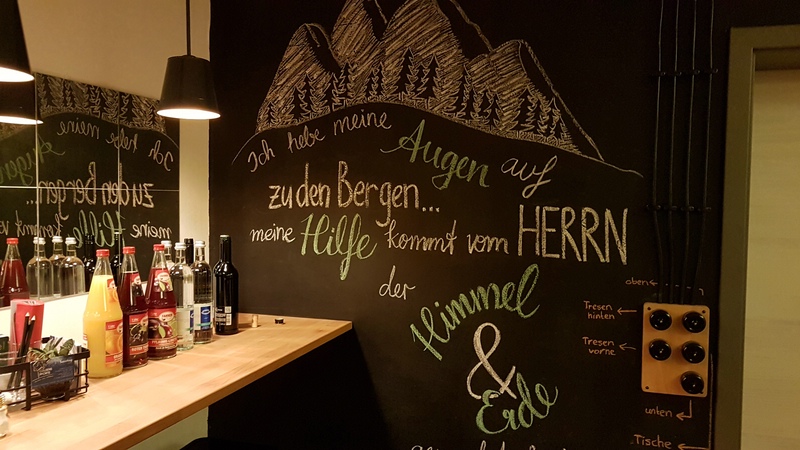 Ich hebe meine Augen auf
zu den Bergen...
meine Hilfe kommt vom HERRN
der Himmel
&
Erde
oben
Tresen
hinten
Tresen
vorne
unten
Tische